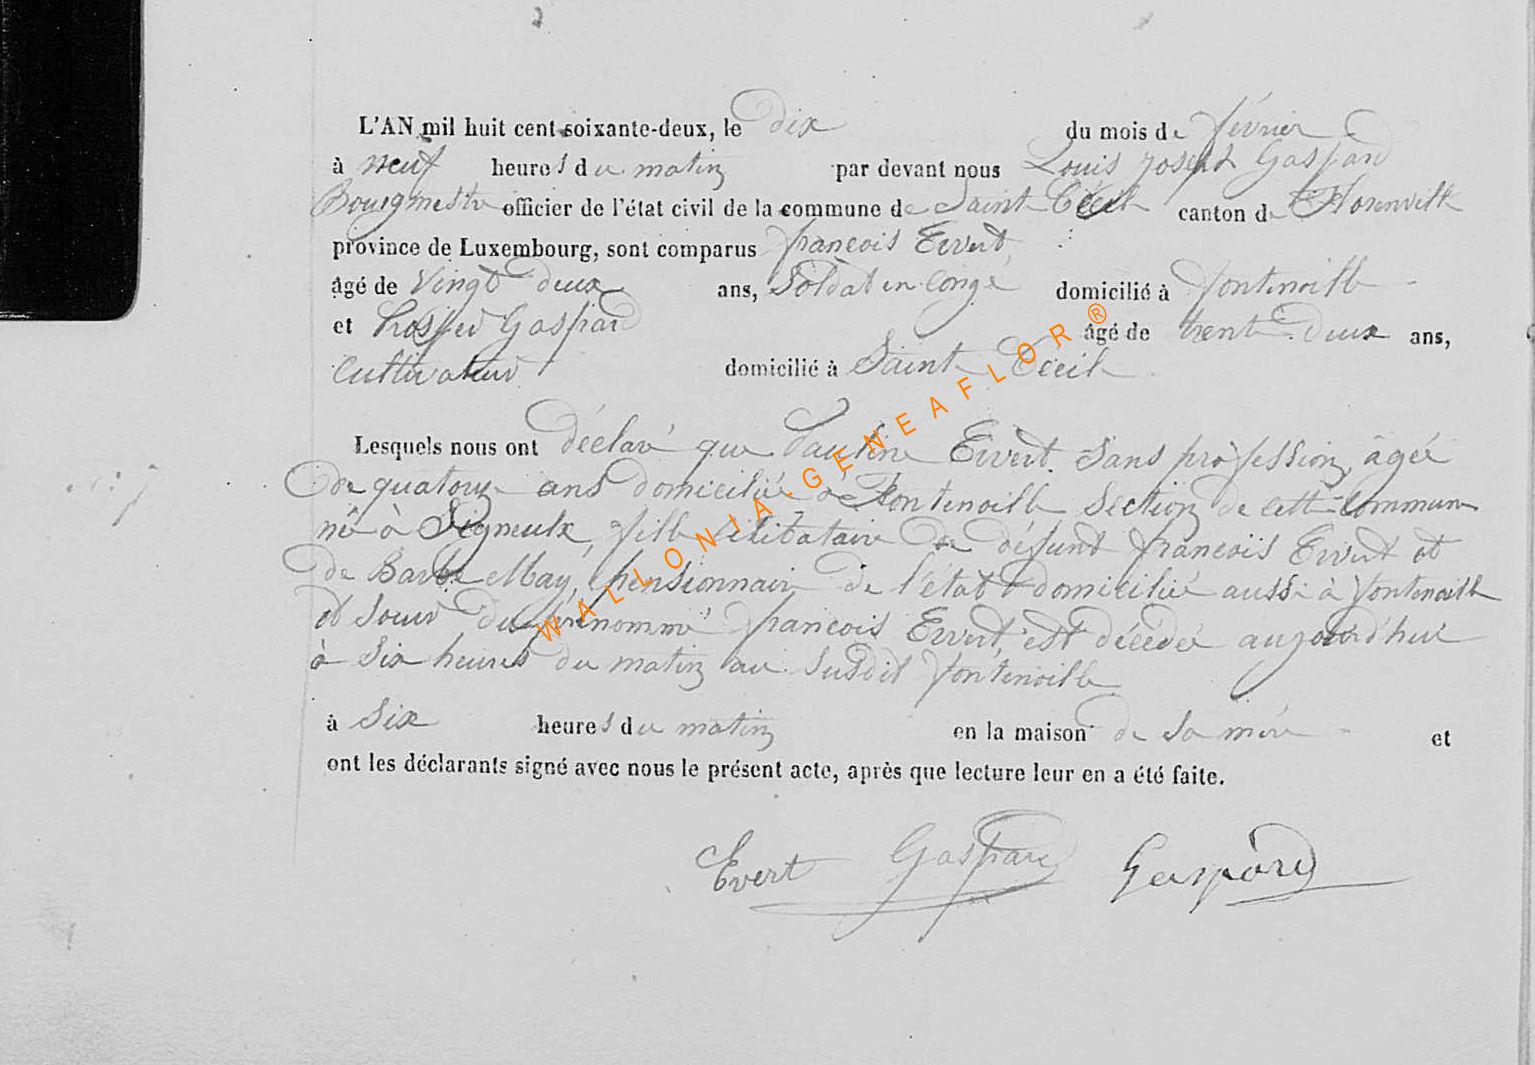 L'AN mil huit cent soixante-deux, le dix du mois de février
à neuf heures du matin par devant nous Louis Joseph Gaspard
Bourgmestre officier de l'état civil de la commune de Sainte Cécile canton de Florenville
province de Luxembourg, sont comparus françois Evert,
âgé de Vingt deux ans, Soldat en congé domicilié à fontenoille
et Prosper Gaspard âgé de trente deux ans,
Cultivateur domicilié à Sainte Cécile
Lesquels nous ont déclaré que Pauline Evert sans profession, âgée
de quatorze ans domiciliée à fontenoille section de cette commune
née à Signeulx, fille célibataire de défunt françois Evert et
de Barbe May, pensionnaire de l'état domiciliée aussi à fontenoille
et soeur du prénommé françois Evert, est décédée aujourd'hui
à six heures du matin au susdit fontenoille
à six heures du matin en la maison de sa mère et
ont les déclarants signé avec nous le présent acte, après que lecture leur en a été faite.
Evert Gaspard Gaspard
WALLONIA-GENEAFLOR®